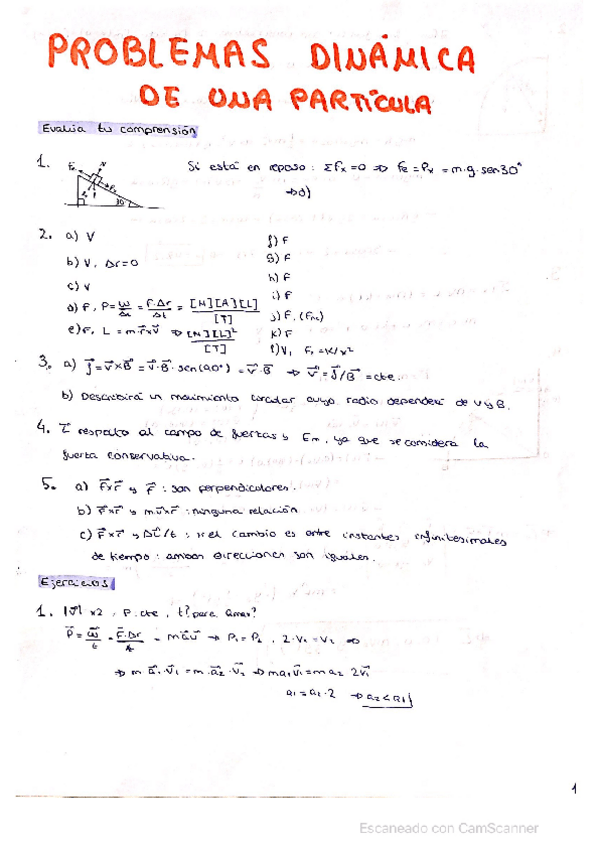 PROBLEMAS DINÁMICA
DE UNA PARTÍCULA
Evalúa tu comprensión
1. Si está en reposo: ΣFx=0 ⇒ Fe = Px = m·g·sen30°
⇒d)
30
2. a) V
b) V, Δr=0
c) V
d) F, P=ω/Δt = F·Δr/Δt = [M][A][L]/[T]
e) F, L = m·r⃗×v⃗ ⇒ [M][L]²/[T]
f) F
g) F
h) F
i) F
j) F, (Fnc)
k) F
l) V, F, =K/x²
3. a) f⃗=v⃗×B⃗ =v⃗·B⃗·sen(90°) = v⃗·B⃗ ⇒ v⃗=f⃗/B⃗ =cte.
b) Describirá un movimiento circular cuyo radio dependerá de v y B.
4. respecto al campo de fuerzas y Em, ya que se considera la
fuerza conservativa.
5. a) F⃗×r⃗ y F⃗ : son perpendiculares.
b) F⃗×r⃗ y m·v⃗×r⃗ : ninguna relación
c) F⃗×r⃗ y ΔL⃗/t : si el cambio es entre instantes infinitesimales
de tiempo: ambas direcciones son iguales.
Ejercicios
1. |v⃗| x2, P.cte, t? para amax?
P⃗ = ω⃗/t = F⃗·Δr/t = m·a⃗·v⃗ → P₁ = P₂, 2·V₁=V₂ ⇒
⇒ m·a⃗₁·v⃗₁ = m·a⃗₂·v⃗₂ ⇒ ma₁v⃗₁=ma₂ 2v⃗₁
a₁ = a₂·2 ⇒ a₂<a₁
1
Escaneado con CamScanner